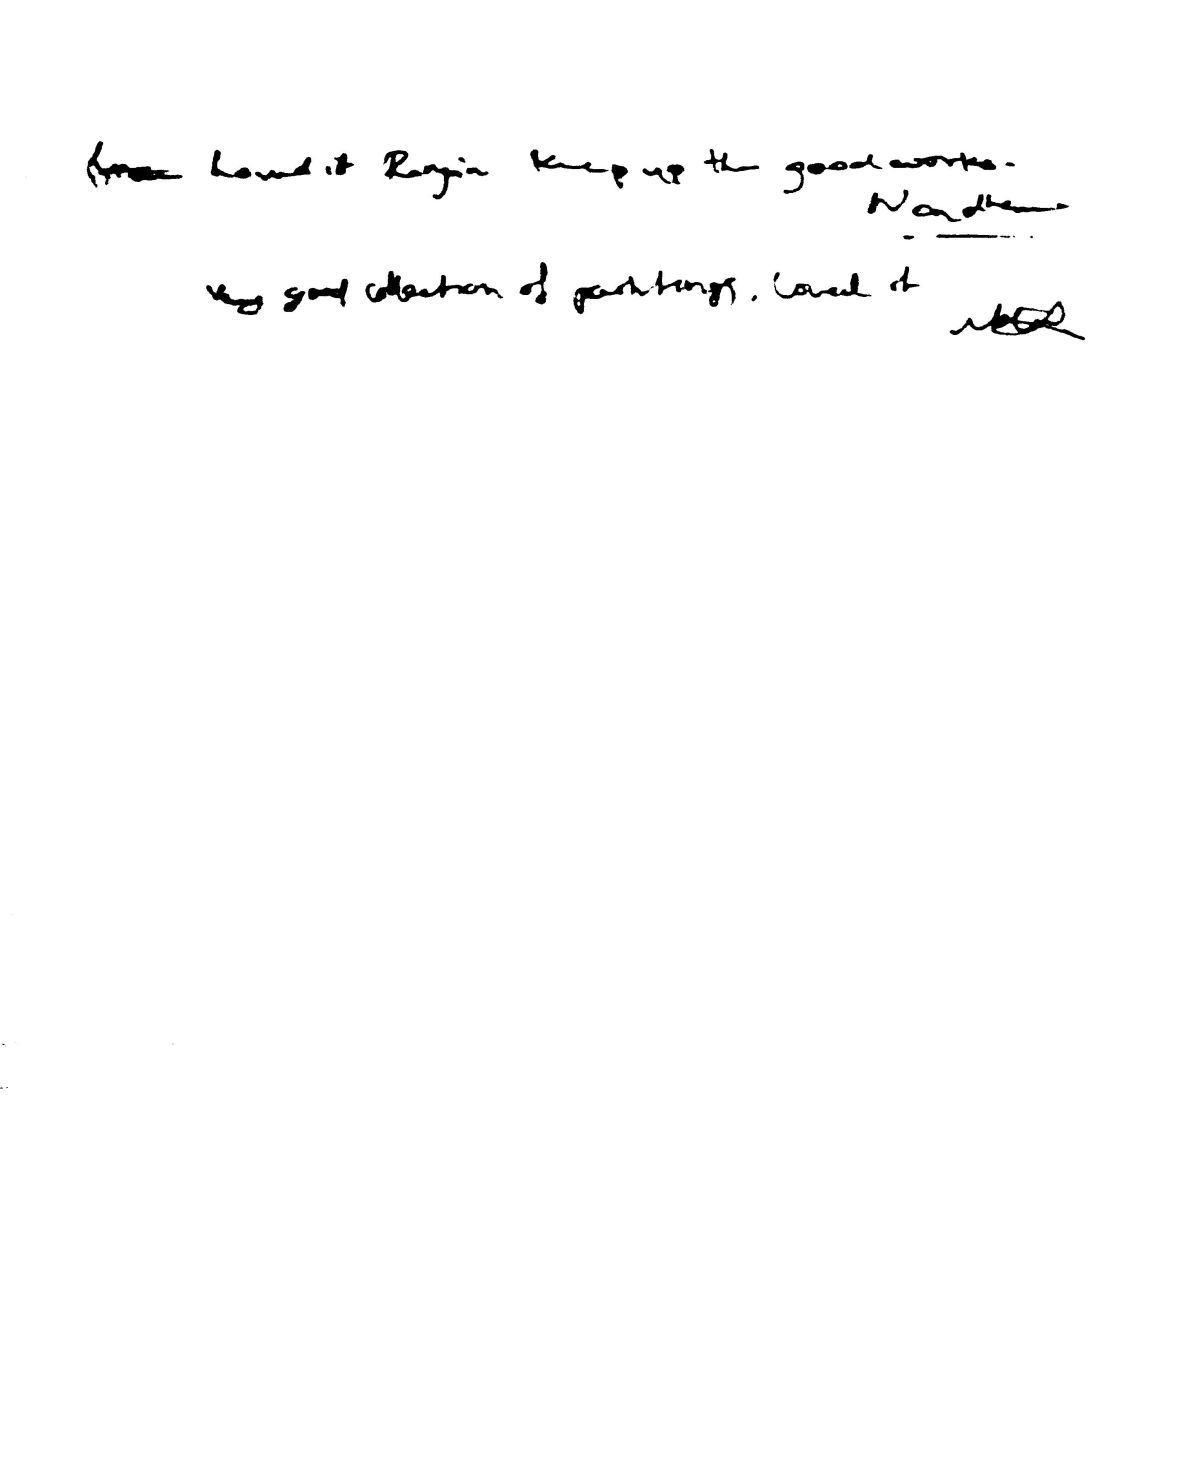 Loved it Rangin Keep up the good works.
Very good collection of paintings. Loved it